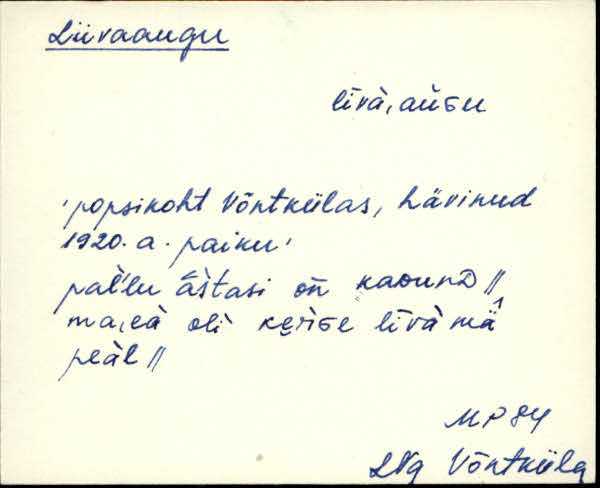 Liivaaugu
līvà, aùɢu
'popsikoht Võntkülas, hävinud
1920. a. paiku'
pal'lu āštasi oñ kaounᴅ //
ma,eà oli keriɢe līvà mä̂
peàl //
MP 84
LNg Võntküla